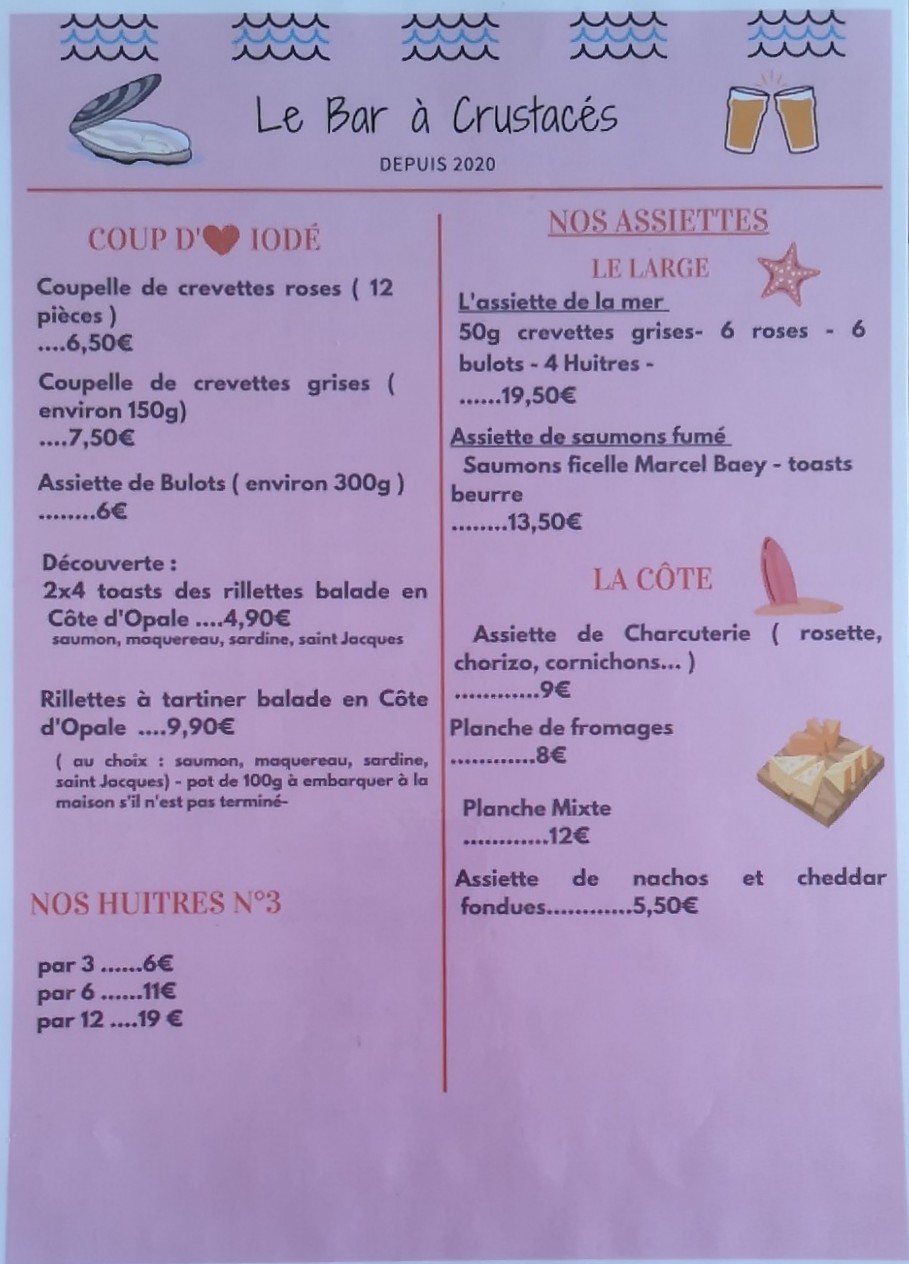 Le Bar à Crustacés
DEPUIS 2020
COUP D'❤ IODÉ
Coupelle de crevettes roses ( 12
pièces )
....6,50€
Coupelle de crevettes grises (
environ 150g)
....7,50€
Assiette de Bulots ( environ 300g )
........6€
Découverte :
2x4 toasts des rillettes balade en
Côte d'Opale ....4,90€
saumon, maquereau, sardine, saint Jacques
Rillettes à tartiner balade en Côte
d'Opale ....9,90€
( au choix : saumon, maquereau, sardine,
saint Jacques) - pot de 100g à embarquer à la
maison s'il n'est pas terminé-
NOS HUITRES N°3
par 3 ......6€
par 6 ......11€
par 12 ....19 €
NOS ASSIETTES
LE LARGE
L'assiette de la mer
50g crevettes grises- 6 roses - 6
bulots - 4 Huitres -
......19,50€
Assiette de saumons fumé
Saumons ficelle Marcel Baey - toasts
beurre
........13,50€
LA CÔTE
Assiette de Charcuterie ( rosette,
chorizo, cornichons... )
............9€
Planche de fromages
............8€
Planche Mixte
............12€
Assiette de nachos et cheddar
fondues............5,50€